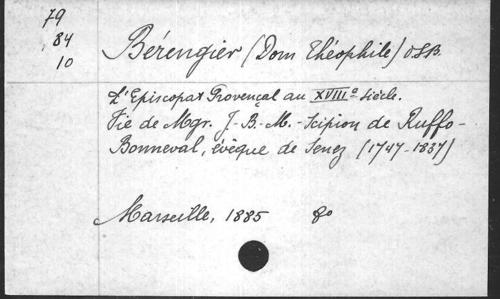 79
84
10
Bérengier (Dom Théophile) O.S.B.
L'Episcopat Provençal au XVIIIe siècle.
Vie de Mgr. J.-B.-M.-Scipion de Ruffo-
Bonneval, évêque de Senez (1747-1837)
Marseille, 1885 8o